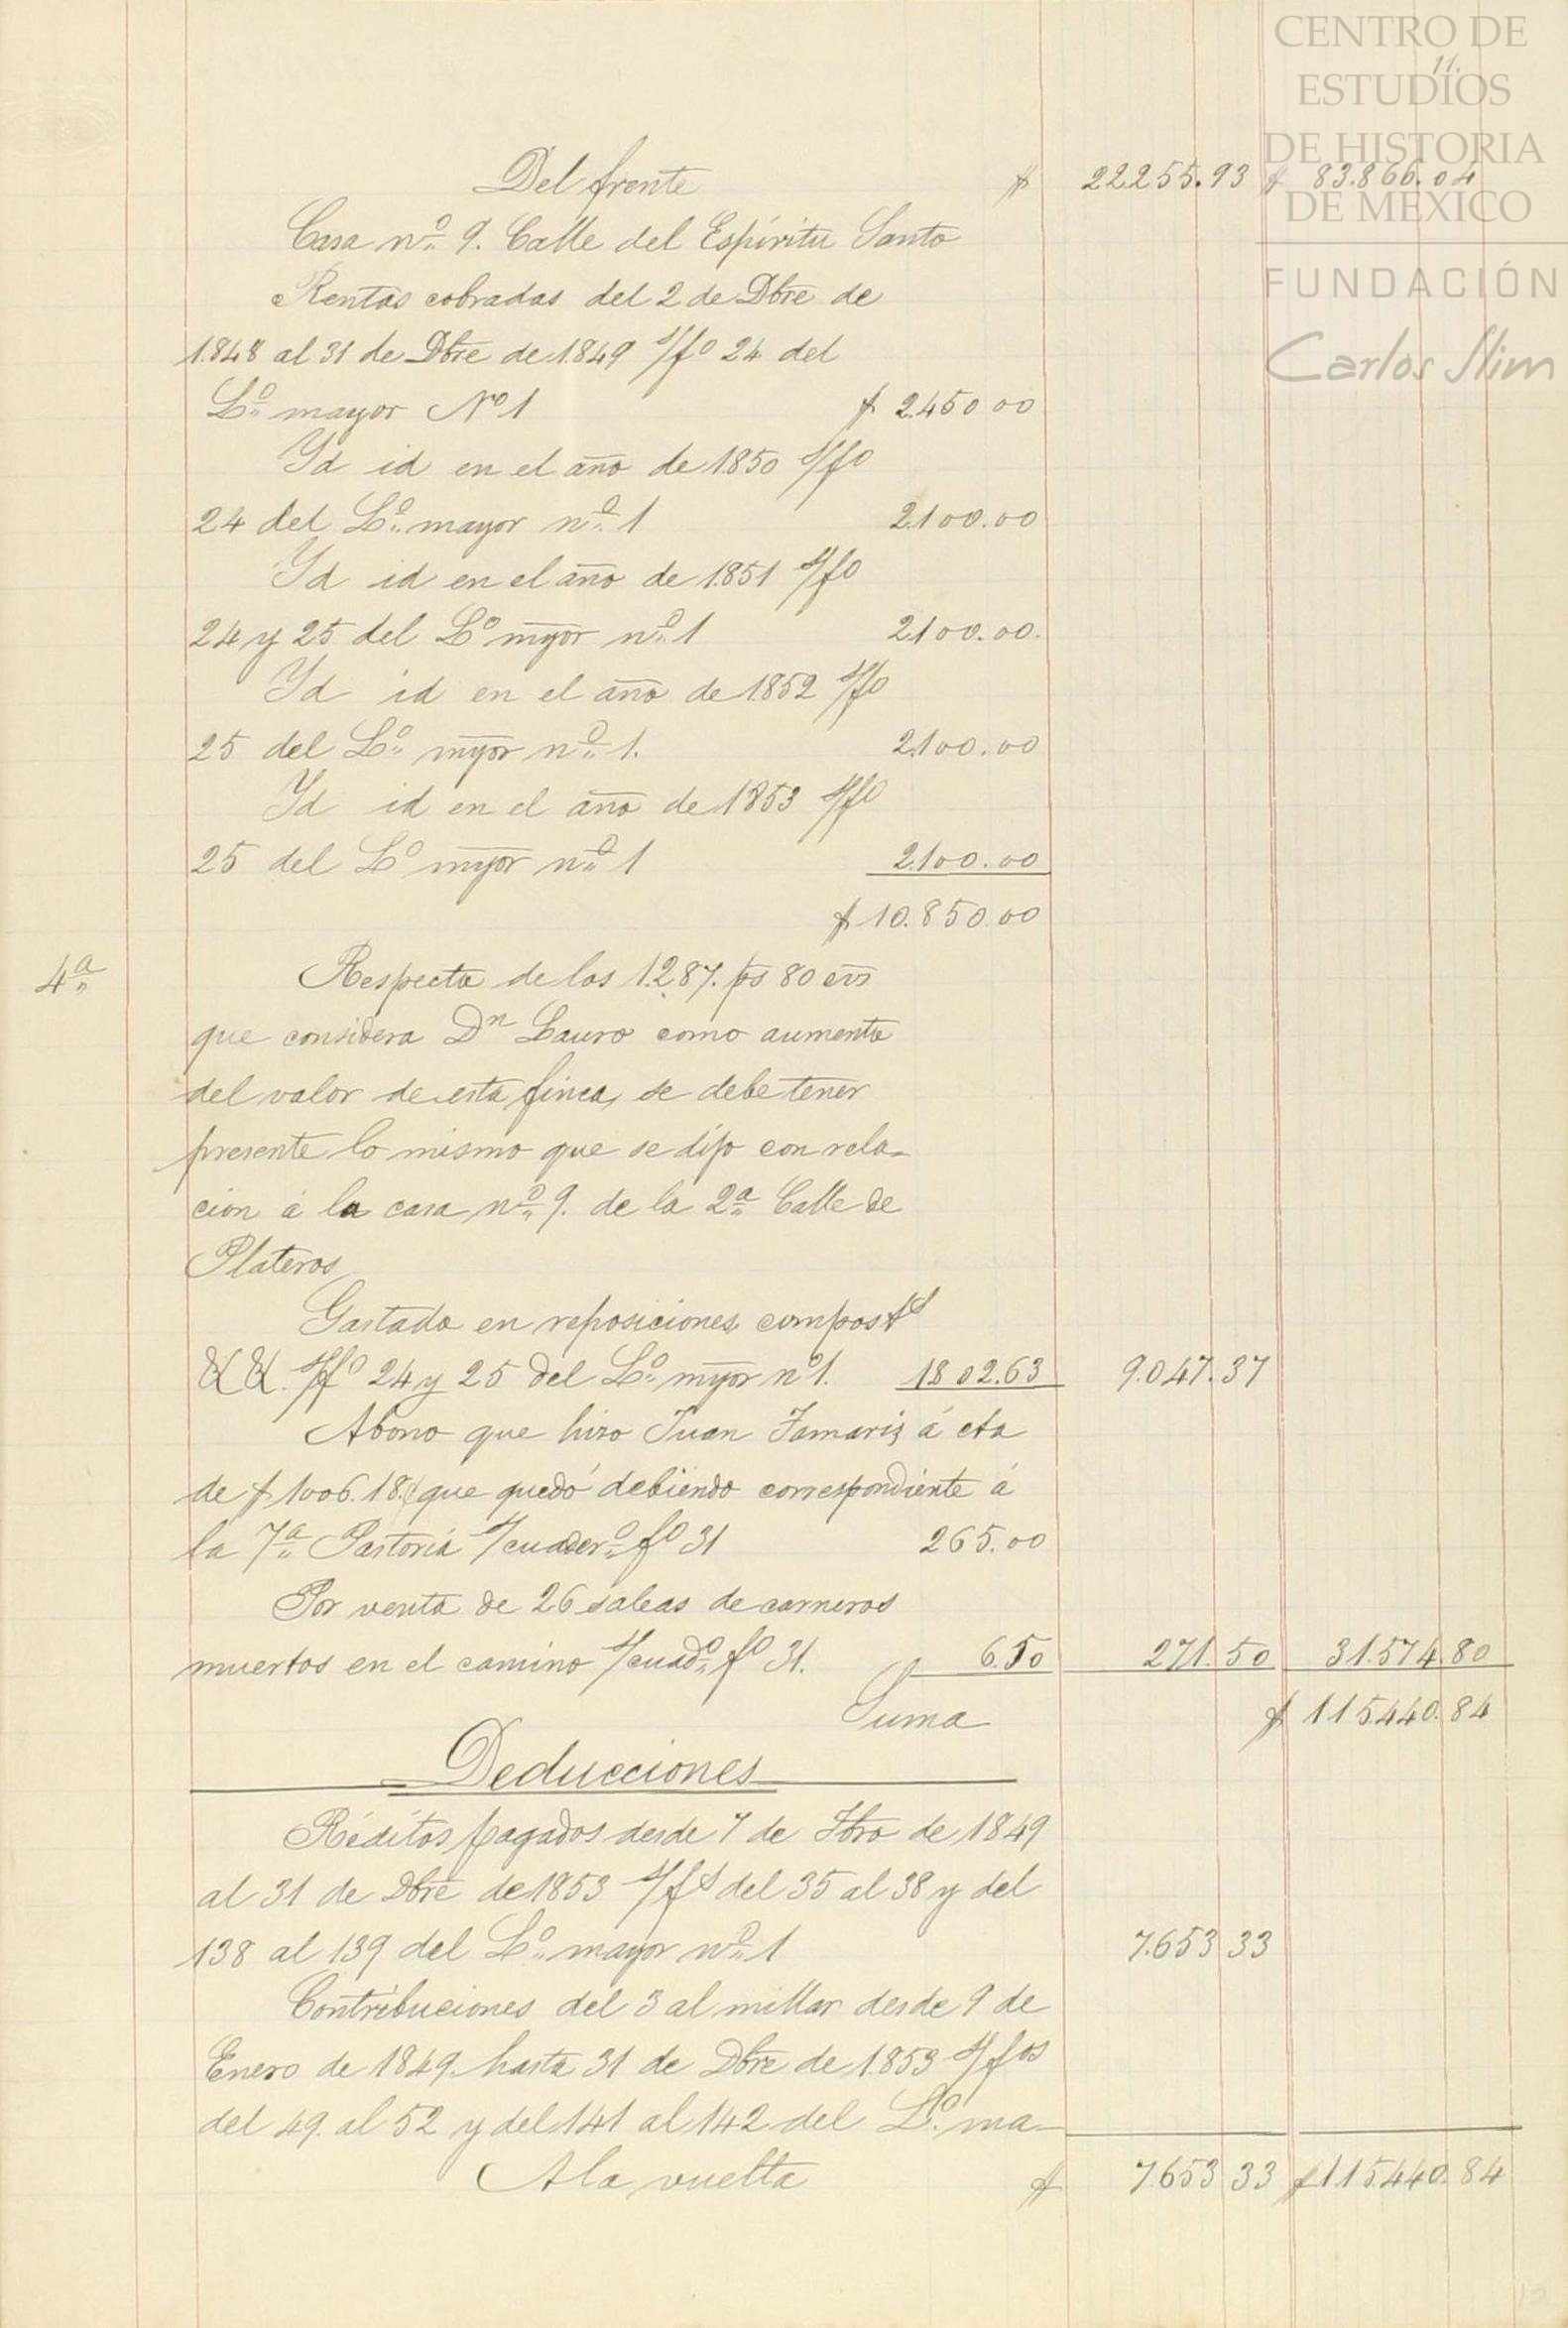 CENTRO DE
ESTUDIOS
DE HISTORIA
DE MEXICO
FUNDACIÓN
Carlos Slim
11.
Del frente $ 22255.93 $ 83.866.04
Casa nº 9. Calle del Espíritu Santo
Rentas cobradas del 2 de Dbre de
1.848 al 31 de Dbre de 1849 s/fº 24 del
Lº mayor Nº 1 $ 2.450 00
Yd id en el año de 1850 s/fº
24 del Lº mayor nº 1 2.100.00
Yd id en el año de 1.851 s/fº
24 y 25 del Lº myor nº 1 2100.00.
Yd id en el año de 1852 s/fº
25 del Lº myor nº 1. 2.100.00
Yd id en el año de 1853 s/fº
25 del Lº myor nº 1 2.100.00
$ 10.850.00
4ª Respecto de los 1.287. ps 80 cvs
que considera Dn Lauro como aumento
del valor de esta finca, se debe tener
presente lo mismo que se dijo con rela-
cion á la casa nº 9. de la 2ª Calle de
Plateros
Gastado en reposiciones composts
&&. s/fº 24 y 25 del Lº myor nº 1. 1802.63 9.047.37
Abono que hizo Juan Tamariz á cta
de $ 1006.18. que quedó debiendo correspondiente á
la 7ª Pastoría s/cuaderº fº 31 265.00
Por venta de 26 saleas de carneros
muertos en el camino s/cuadº fº 31. 6.50 271.50 31.574.80
Suma $ 115.440.84
Deducciones
Réditos pagados desde 7 de 7bre de 1849
al 31 de Dbre de 1853 s/fs del 35 al 38 y del
138 al 139 del Lº mayor nº 1 7.653 33
Contribuciones del 3 al millar desde 9 de
Enero de 1849. hasta 31 de Dbre de 1.853 s/fos
del 49. al 52 y del 141 al 142 del Lº ma-
A la vuelta $ 7.653 33 $ 115.440.84